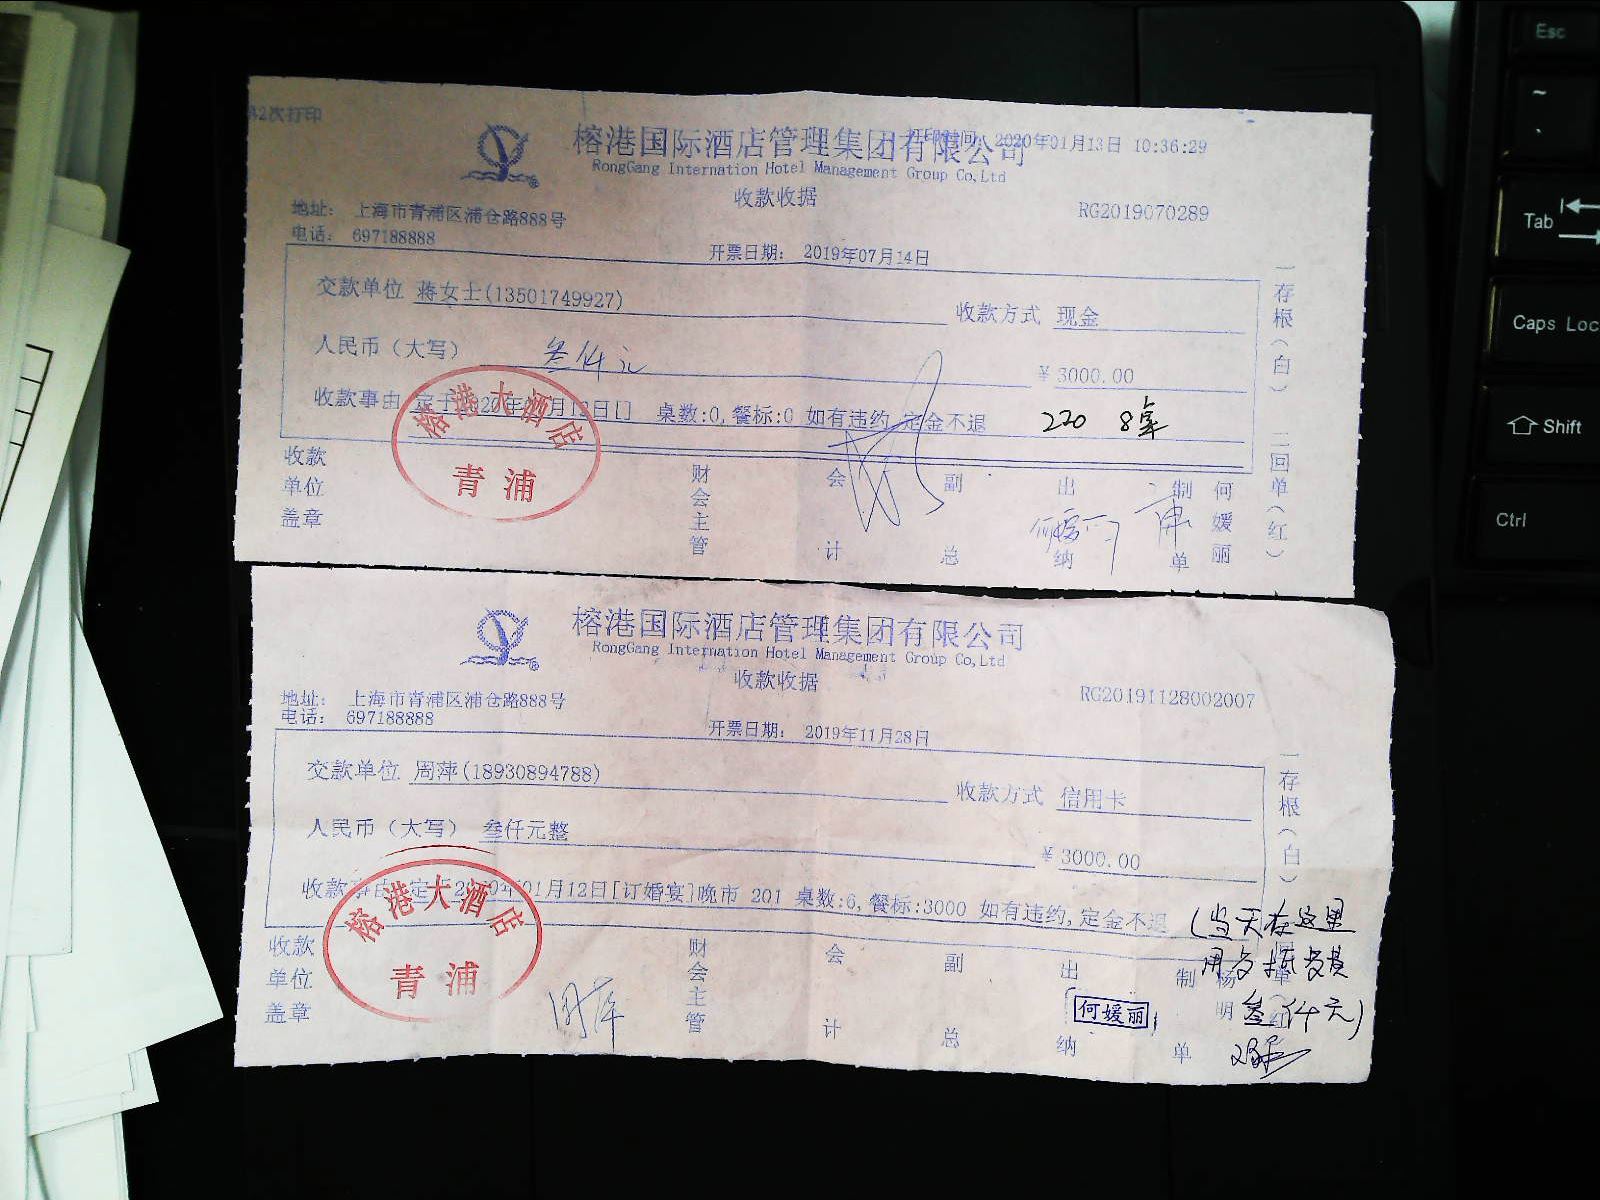 第2次打印
榕港国际酒店管理集团有限公司
打印时间: 2020年01月13日 10:36:29
RongGang Internation Hotel Management Group Co,Ltd
收款收据
RG2019070289
地址: 上海市青浦区浦仓路888号
电话: 697188888
开票日期: 2019年07月14日
交款单位 蒋女士(13501749927)
收款方式 现金
人民币（大写） 叁仟元
￥3000.00
收款事由 定于2020年 月12日[] 桌数:0,餐标:0 如有违约,定金不退 220 8桌
收款单位盖章
财会主管
会计
副总
出纳
制单
何媛丽
何媛丽
一存根（白） 二回单（红）
榕港大酒店
青浦
榕港国际酒店管理集团有限公司
RongGang Internation Hotel Management Group Co,Ltd
收款收据
RG20191128002007
地址: 上海市青浦区浦仓路888号
电话: 697188888
开票日期: 2019年11月28日
交款单位 周萍(18930894788)
收款方式 信用卡
人民币（大写） 叁仟元整
￥3000.00
收款事由 定于2020年01月12日[订婚宴]晚市 201 桌数:6,餐标:3000 如有违约,定金不退
(当天在这里
叁仟元)
收款单位盖章
周萍
财会主管
会计
副总
出纳
何媛丽
制单
杨明
一存根（白）
榕港大酒店
青浦
Esc
~
`
Tab
Caps Loc
Shift
Ctrl